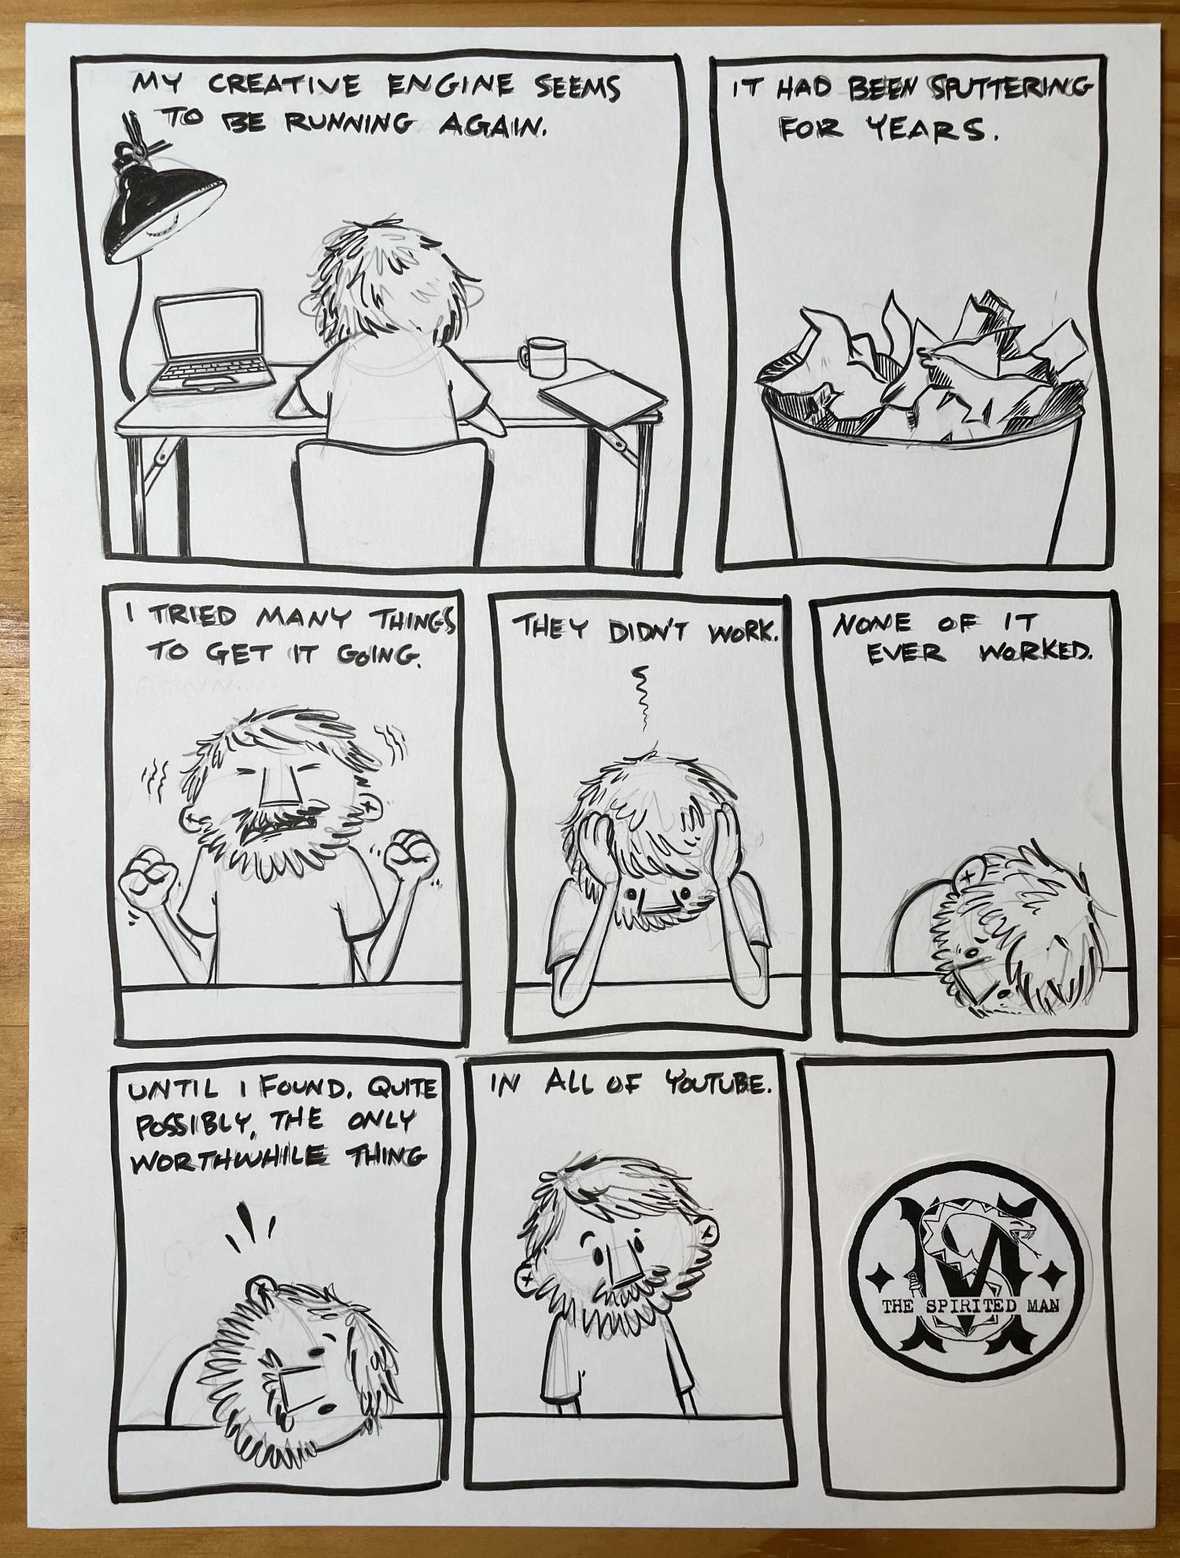 MY CREATIVE ENGINE SEEMS
TO BE RUNNING AGAIN.
IT HAD BEEN SPUTTERING
FOR YEARS.
I TRIED MANY THINGS
TO GET IT GOING.
THEY DIDN'T WORK.
NONE OF IT
EVER WORKED.
UNTIL I FOUND. QUITE
POSSIBLY, THE ONLY
WORTHWHILE THING
IN ALL OF YOUTUBE.
M
THE SPIRITED MAN